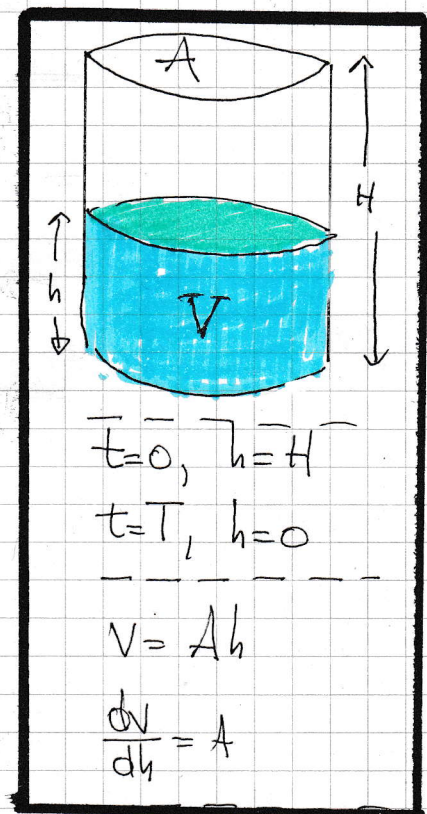 A
H
h
V
t=0, h=H
t=T, h=0
V= Ah
dV/dh = A